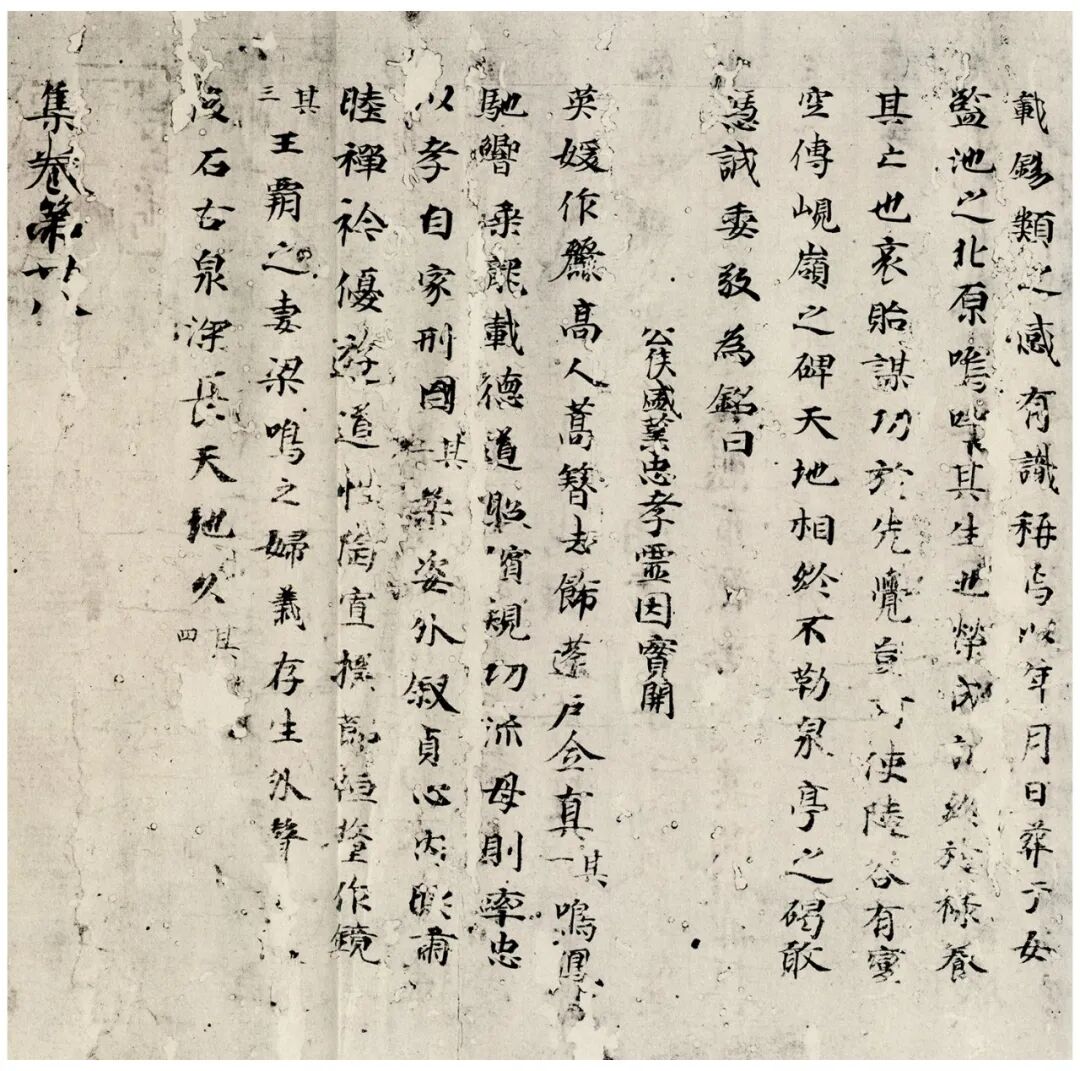 載錫類之感有識稱焉以年月日葬于安
監池之北原嗚呼其生也榮成訓終於祿養
其亡也哀貽謀切於先覺豈可使陵谷有變
空傳峴嶺之碑天地相終不勒泉亭之碣敢
憑誠委敬為銘曰
公侯盛業忠孝靈因寶開
英媛作儷高人蒿簪去飾蓬戶全真其一鳴凰
馳響乘龍載德道照賓規功流母則率忠
以孝自家刑國其二柔姿外叙貞心內映肅
睦禪衿優遊道性陶宣擇鄰恒瑩作鏡
其三王霸之妻梁鳴之婦義存生外聲
石古泉深長天地久其四
集卷第廿八